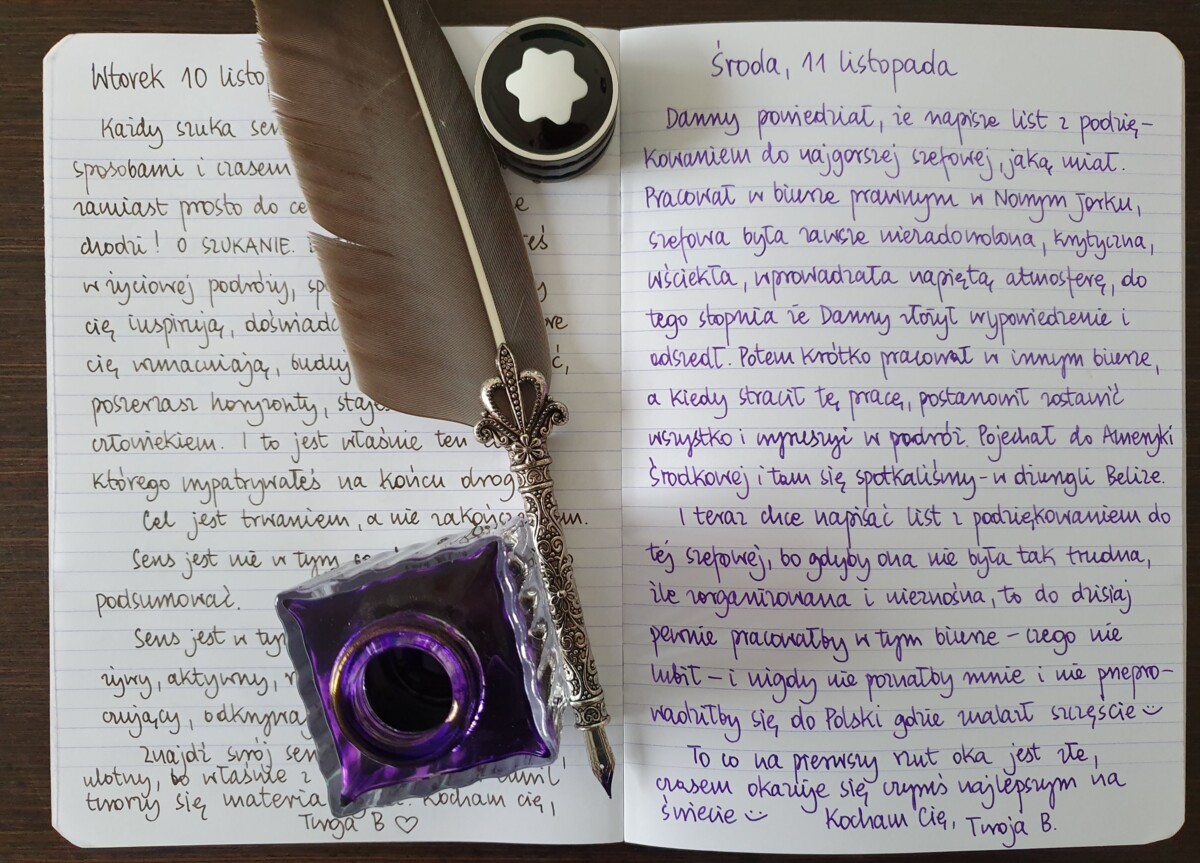 Wtorek 10
Każdy szuka
sposobami i czasem
zamiast prosto do
chodzi! O SZUKANIE.
w życiowej podróży,
cię inspirują,
cię wzmacniają,
poszerzasz horyzonty,
człowiekiem. I to jest właśnie ten
którego wypatrywałeś na końcu
Cel jest trwaniem, a nie
Sens jest nie w tym
podsumować.
Sens jest w
żywy, aktywny,
Znajdź swój
ulotny, bo właśnie z
tworzy się Kocham cię,
Twoja B ♡
Środa, 11 listopada
Danny powiedział, że napisze list z podzię-
kowaniem do najgorszej szefowej, jaką miał.
Pracował w biurze prawnym w Nowym Jorku,
szefowa była zawsze niezadowolona, krytyczna,
wściekła, wprowadzała napiętą atmosferę, do
tego stopnia że Danny złożył wypowiedzenie i
odszedł. Potem krótko pracował w innym biurze,
a kiedy stracił tę pracę, postanowił zostawić
wszystko i wyruszyć w podróż. Pojechał do Ameryki
Środkowej i tam się spotkaliśmy - w dżungli Belize.
I teraz chce napisać list z podziękowaniem do
tej szefowej, bo gdyby ona nie była tak trudna,
źle zorganizowana i nieznośna, to do dzisiaj
pewnie pracowałby w tym biurze - czego nie
lubił - i nigdy nie poznałby mnie i nie przepro-
wadziłby się do Polski gdzie znalazł szczęście
To co na pierwszy rzut oka jest złe,
czasem okazuje się czymś najlepszym na
świecie Kocham Cię, Twoja B.